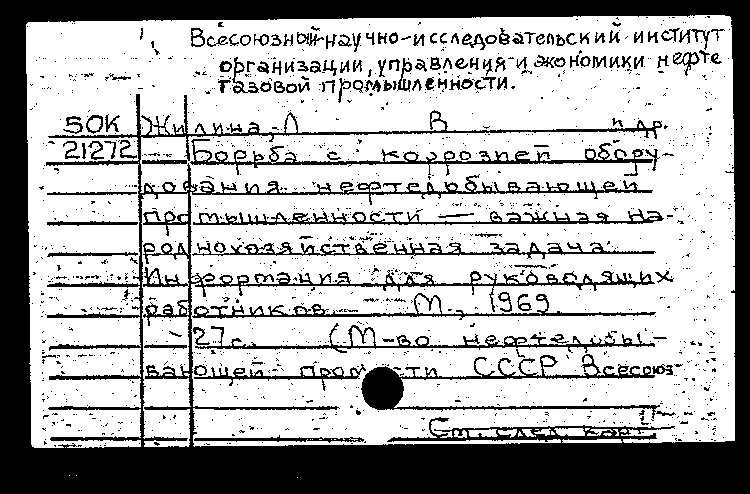 Всесоюзный научно-исследовательский институт
организации, управления и экономики нефте
газовой промышленности.
50К Жилина, Л В и др.
21272 — Борьба с коррозией обору-
дования нефтедобывающей
промышленности — важная на-
роднохозяйственная задача.
Информация для руководящих
работников. — М., 1969.
27с. (М-во нефтедобы-
вающей пром сти СССР Всесоюз-
См. след. карт